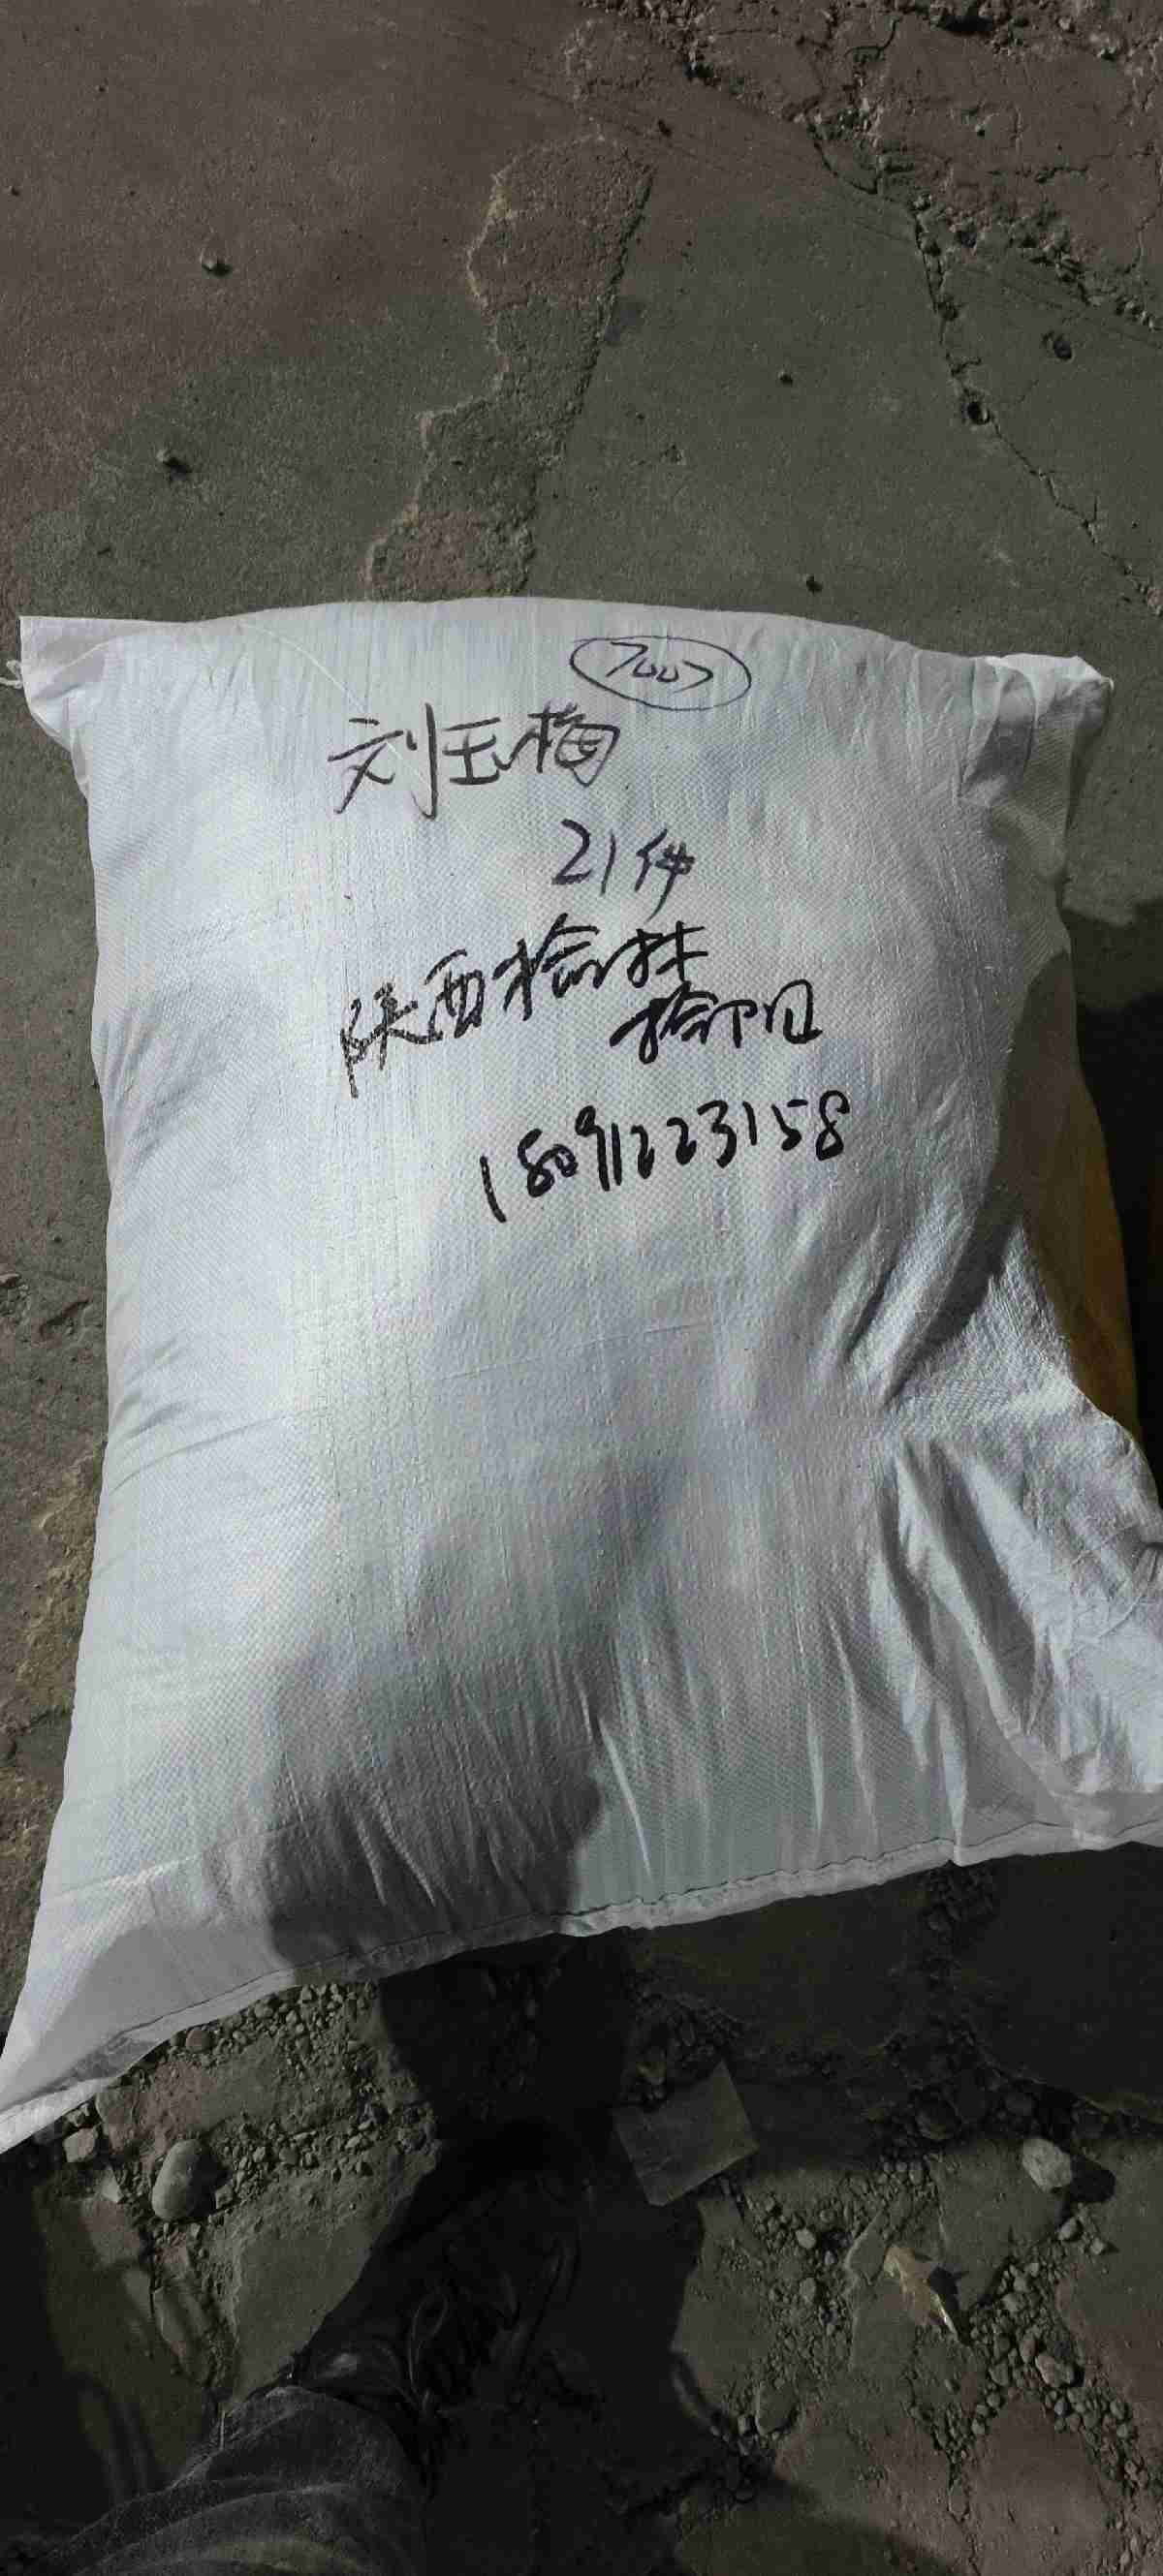 7007
刘玉梅
21件
陕西榆林
榆阳
18091223158